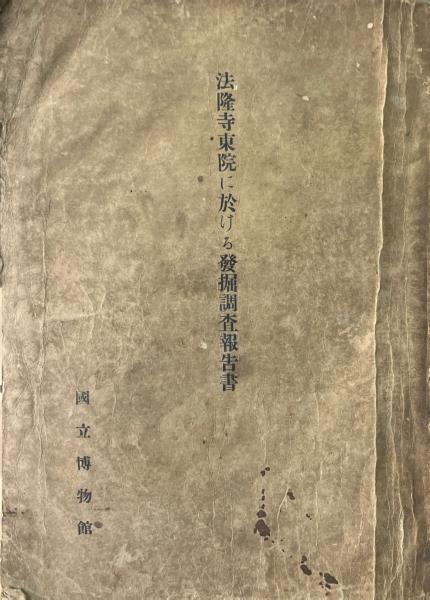 法隆寺東院に於ける發掘調査報告書
國立博物館